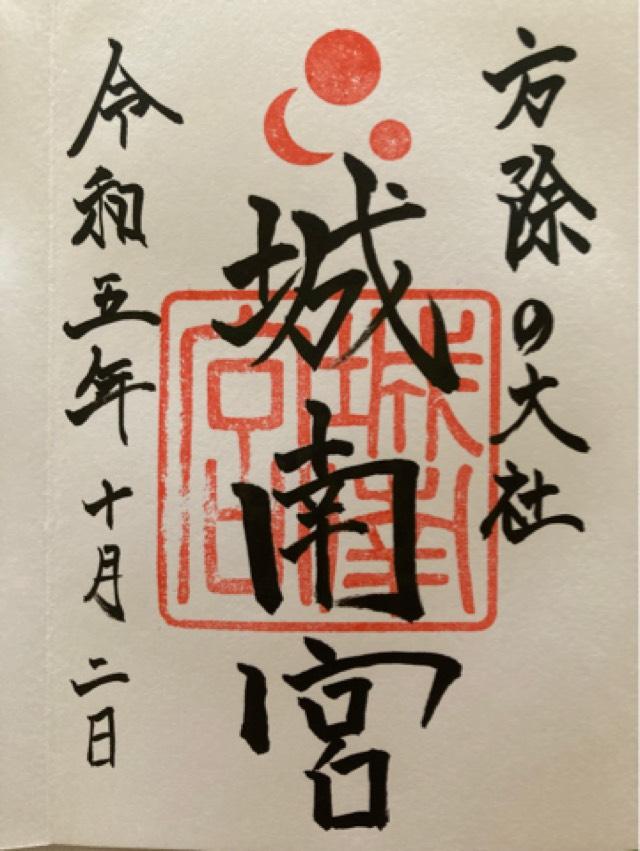 方除の大社
城南宮
城南宮
令和五年十月二日